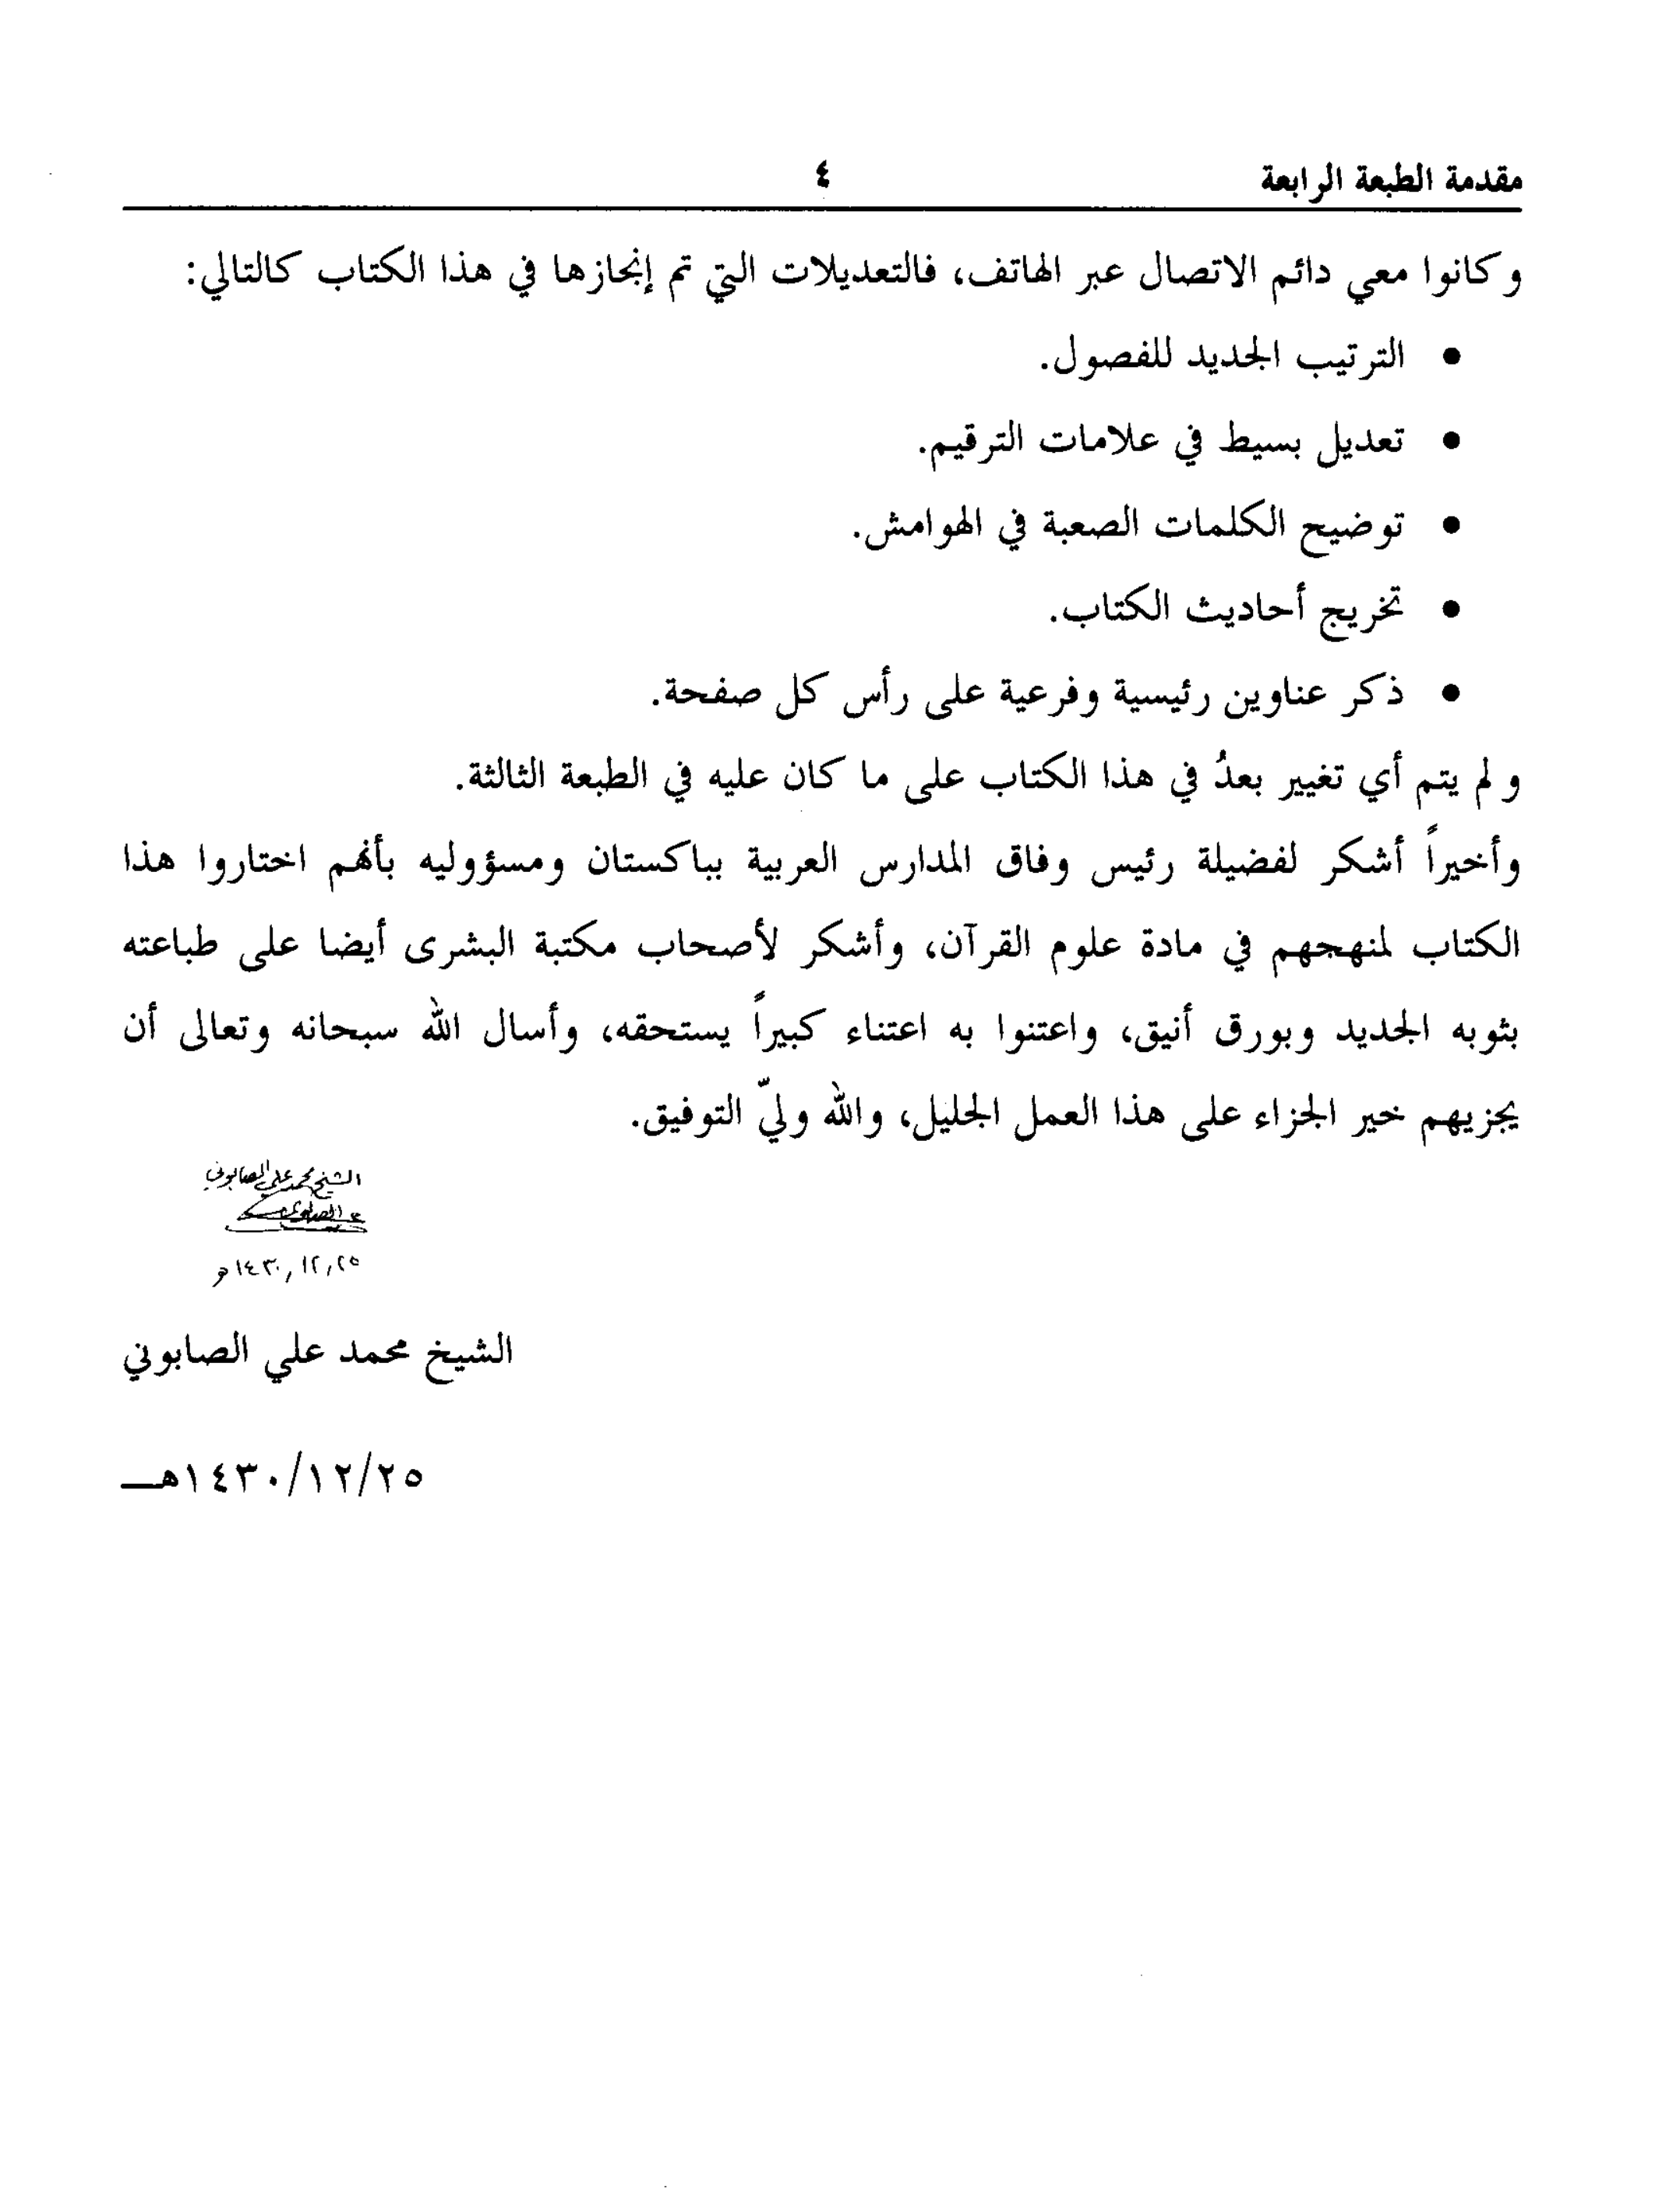 مقدمة الطبعة الرابعة ٤
وكانوا معي دائم الاتصال عبر الهاتف، فالتعديلات التي تم إنجازها في هذا الكتاب كالتالي:
• الترتيب الجديد للفصول.
• تعديل بسيط في علامات الترقيم.
• توضيح الكلمات الصعبة في الهوامش.
• تخريج أحاديث الكتاب.
• ذكر عناوين رئيسية وفرعية على رأس كل صفحة.
و لم يتم أي تغيير بعدُ في هذا الكتاب على ما كان عليه في الطبعة الثالثة.
وأخيراً أشكر لفضيلة رئيس وفاق المدارس العربية بباكستان ومسؤوليه بأنهم اختاروا هذا
الكتاب لمنهجهم في مادة علوم القرآن، وأشكر لأصحاب مكتبة البشرى أيضا على طباعته
بثوبه الجديد وبورق أنيق، واعتنوا به اعتناء كبيراً يستحقه، وأسال الله سبحانه وتعالى أن
يجزيهم خير الجزاء على هذا العمل الجليل، والله وليّ التوفيق.
الشيخ محمد علي الصابوني
٢٥,١٢,١٤٣٠هـ
الشيخ محمد علي الصابوني
١٤٣٠/١٢/٢٥هـــ